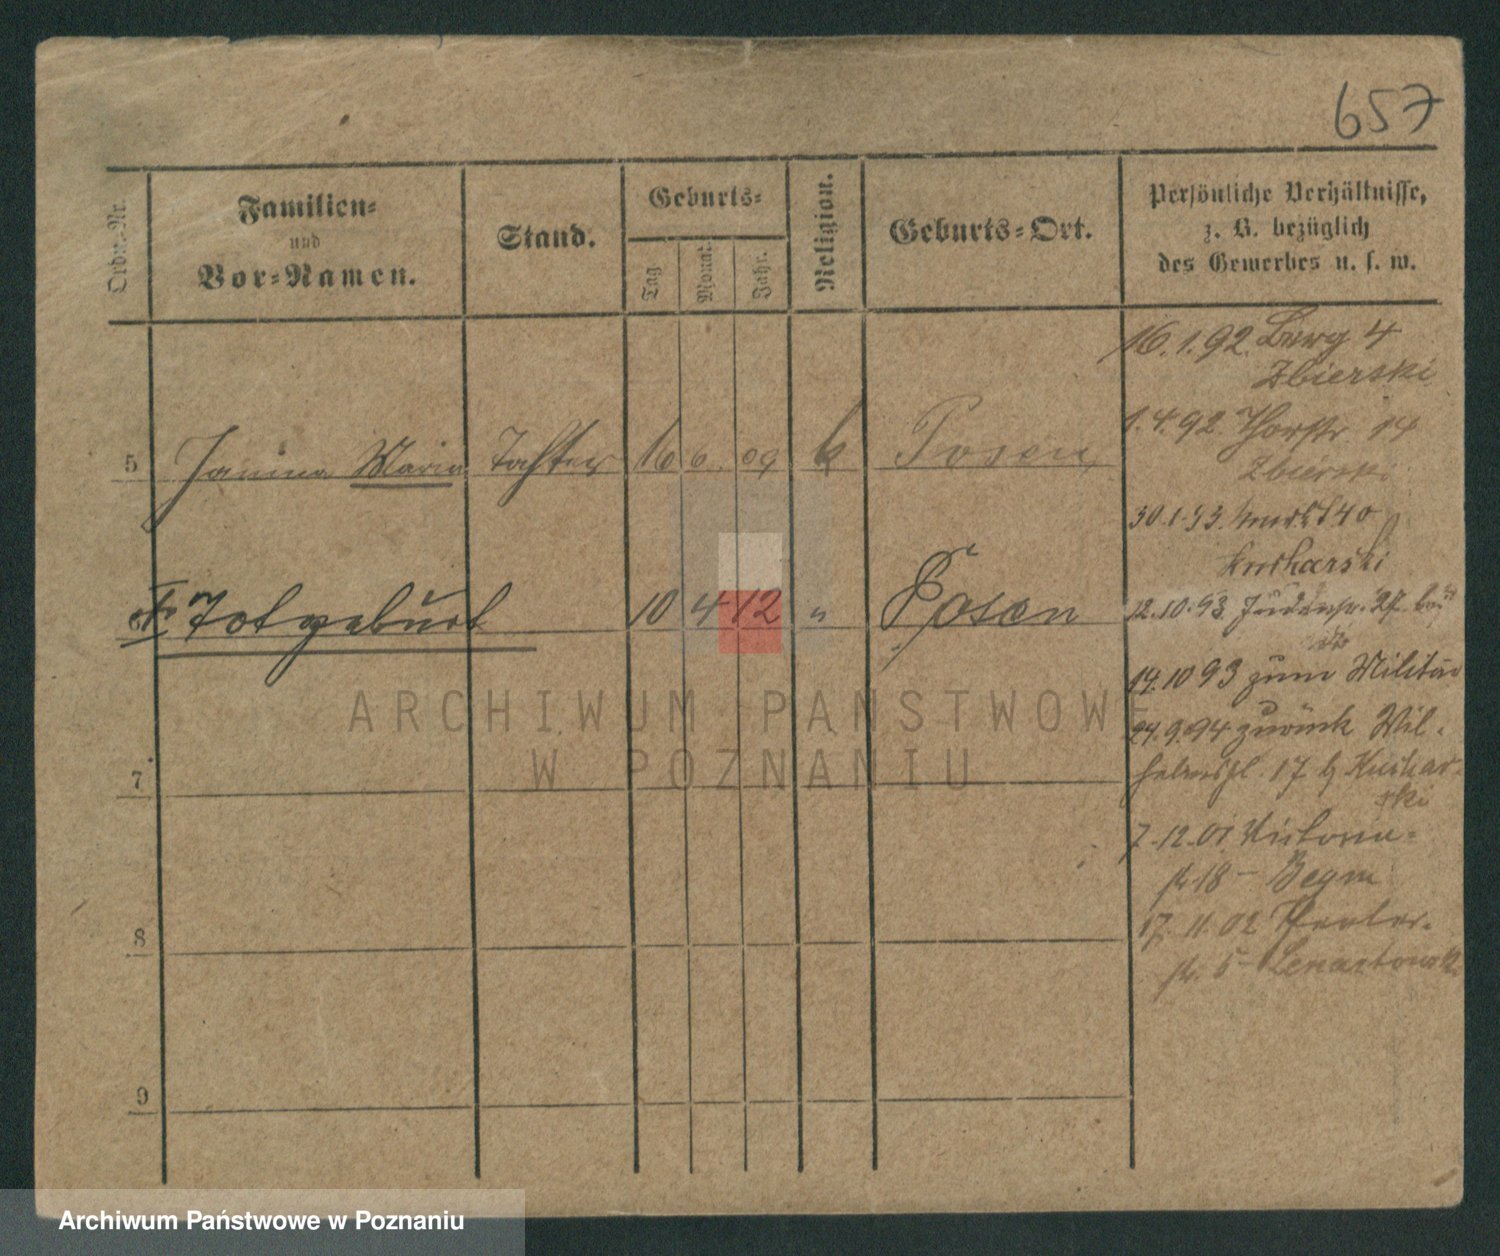 657
Ordn.-Nr.
Familien-
und
Vor-Namen.
Stand.
Geburts-
Tag
Monat.
Jahr.
Religion.
Geburts-Ort.
Persönliche Verhältnisse,
z. B. bezüglich
des Gewerbes u. s. w.
5 Janina Maria Tochter 16 6. 09 Posen
Totgeburt 10 4 12 " Posen
7
8
9
16.1.92. Berg 4
Zbierski
1.4.92 14
Zbierski
30.1.93. 40
Kucharski
12.10.93. Judenstr. 27
14.10 93 zum Militär
24.9.94 zurück Wil-
helmspl. 17 b Kuchar-
ski
7.12.01 Victoria-
str. 18 -
17. 11. 02
str. 5 - Lenartowski
ARCHIWUM PAŃSTWOWE
W POZNANIU
Archiwum Państwowe w Poznaniu